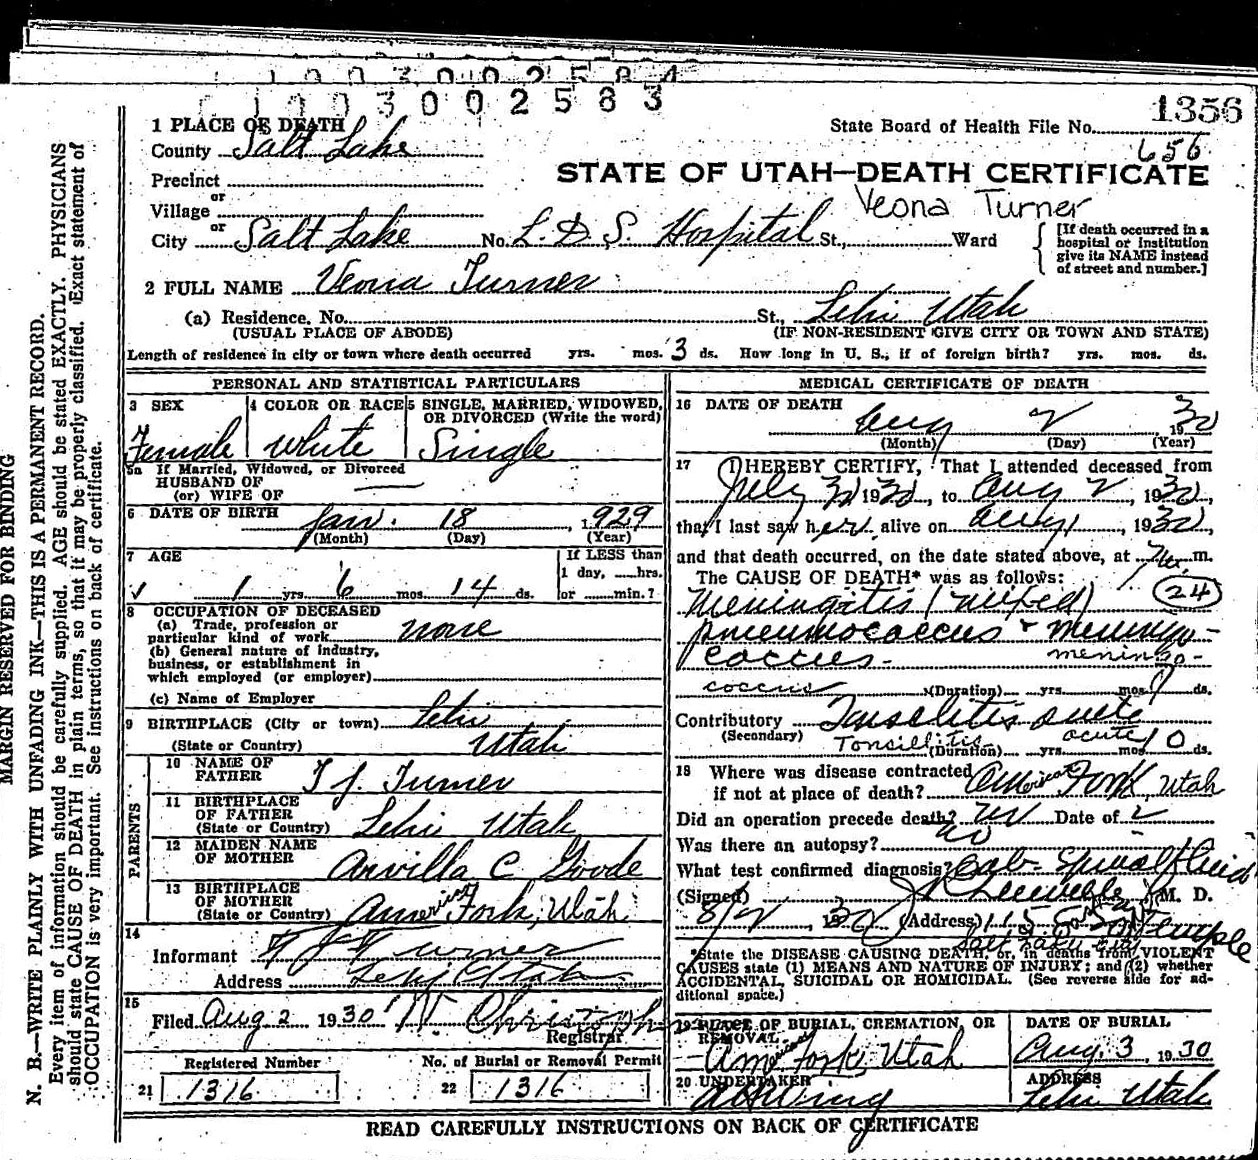 1003002584
1003002583
1356
1 PLACE OF DEATH
State Board of Health File No.
656
County Salt Lake
STATE OF UTAH—DEATH CERTIFICATE
Precinct
or
Village
Veona Turner
or
City Salt Lake No. L.D.S. Hospital St., Ward
[If death occurred in a
hospital or institution
give its NAME instead
of street and number.]
2 FULL NAME Veona Turner
(a) Residence. No. St., Lehi Utah
(USUAL PLACE OF ABODE) (IF NON-RESIDENT GIVE CITY OR TOWN AND STATE)
Length of residence in city or town where death occurred yrs. mos. 3 ds. How long in U. S., if of foreign birth? yrs. mos. ds.
PERSONAL AND STATISTICAL PARTICULARS
3 SEX 4 COLOR OR RACE 5 SINGLE, MARRIED, WIDOWED,
OR DIVORCED (Write the word)
Female White Single
5a If Married, Widowed, or Divorced
HUSBAND OF
(or) WIFE OF
6 DATE OF BIRTH Jan. 18, 1929
(Month) (Day) (Year)
7 AGE If LESS than
1 day, hrs.
1 yrs. 6 mos. 14 ds. or min.?
8 OCCUPATION OF DECEASED
(a) Trade, profession or
particular kind of work none
(b) General nature of industry,
business, or establishment in
which employed (or employer)
(c) Name of Employer
9 BIRTHPLACE (City or town) Lehi
(State or Country) Utah
PARENTS
10 NAME OF
FATHER T J. Turner
11 BIRTHPLACE
OF FATHER
(State or Country) Lehi Utah
12 MAIDEN NAME
OF MOTHER Arvilla C Goode
13 BIRTHPLACE
OF MOTHER
(State or Country) American Fork, Utah
14
Informant T J Turner
Address Lehi Utah
15
Filed Aug 2 1930
Registrar
Registered Number No. of Burial or Removal Permit
21 1316 22 1316
MEDICAL CERTIFICATE OF DEATH
16 DATE OF DEATH
Aug 2 1930
(Month) (Day) (Year)
17 I HEREBY CERTIFY, That I attended deceased from
July 30 1930, to Aug 2, 1930,
that I last saw her alive on Aug 1, 1930
and that death occurred, on the date stated above, at m.
The CAUSE OF DEATH* was as follows:
Meningitis (mixed) 24
pneumococcus & meningo-
coccus- meningo-
coccus (Duration) yrs. mos. 9 ds.
Contributory Tonsilitis acute
(Secondary) Tonsillitis acute
(Duration) yrs. mos. 10 ds.
18 Where was disease contracted
if not at place of death? American Fork, Utah
Did an operation precede death? no Date of
Was there an autopsy? no
What test confirmed diagnosis? Lab- Spinal fluid
(Signed) M. D.
8/2 1930 (Address) 115 East So Temple
Salt Lake City
*State the DISEASE CAUSING DEATH, or, in deaths from VIOLENT
CAUSES state (1) MEANS AND NATURE OF INJURY; and (2) whether
ACCIDENTAL, SUICIDAL OR HOMICIDAL. (See reverse side for ad-
ditional space.)
19 PLACE OF BURIAL, CREMATION, OR
REMOVAL
American Fork, Utah
DATE OF BURIAL
Aug. 3, 1930
20 UNDERTAKER
ADDRESS
Lehi Utah
READ CAREFULLY INSTRUCTIONS ON BACK OF CERTIFICATE
MARGIN RESERVED FOR BINDING
N. B.—WRITE PLAINLY WITH UNFADING INK—THIS IS A PERMANENT RECORD.
Every item of information should be carefully supplied. AGE should be stated EXACTLY. PHYSICIANS
should state CAUSE OF DEATH in plain terms, so that it may be properly classified. Exact statement of
OCCUPATION is very important. See instructions on back of certificate.